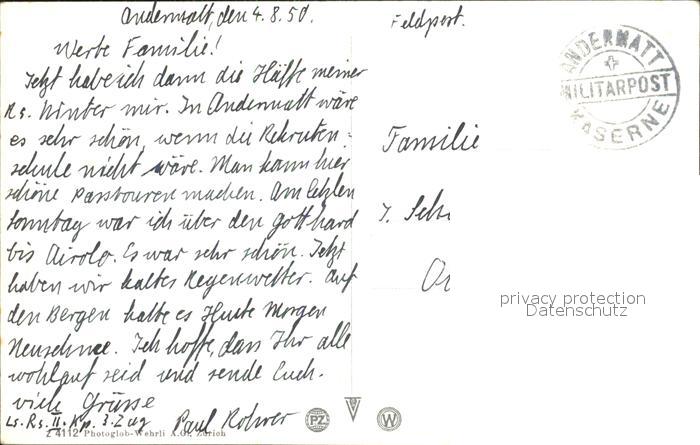 Andermatt, den 4.8.50.
Werte Familie!
Jetzt habe ich dann die Hälfte meiner
Rs. hinter mir. In Andermatt wäre
es sehr schön, wenn die Rekruten=
schule nicht wäre. Man kann hier
schöne Passtouren machen. Am letzten
Sonntag war ich über den Gotthard
bis Airolo. Es war sehr schön. Jetzt
haben wir kaltes Regenwetter. Auf
den Bergen hatte es Heute Morgen
Neuschnee. Ich hoffe, dass Ihr alle
wohlauf seid und sende Euch.
viele Grüsse
Ls. Rs. II. Kp. 3. Zug Paul Rohrer
Z 4112 Photoglob-Wehrli A.G., Zürich
PZ
W
Feldpost.
ANDERMATT
MILITÄRPOST
KASERNE
Familie
J. Sch
privacy protection
Datenschutz